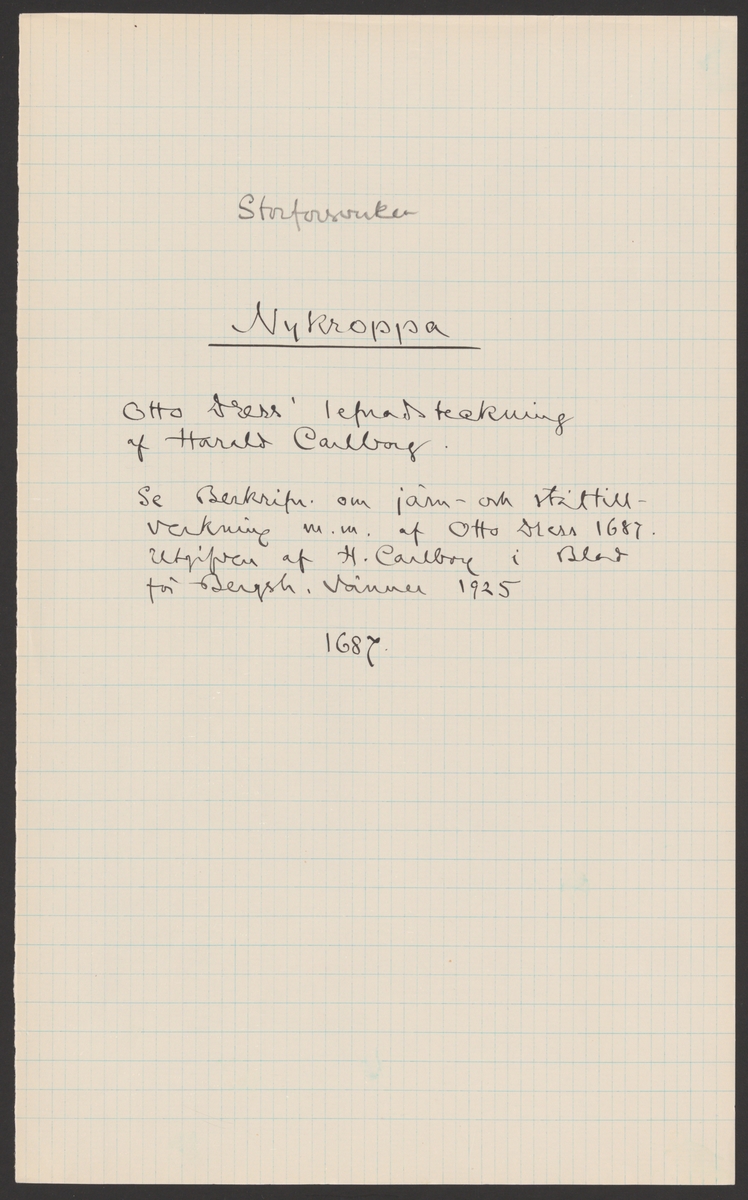 Storforsverken
Nykroppa
Otto Dress' lefnadsteckning
af Harald Carlborg.
Se Beskrifn. om järn- och ståltill-
verkning m.m. af Otto Dress 1687.
Utgifven af H. Carlborg i Blad
för Bergsh. vänner 1925
1687.